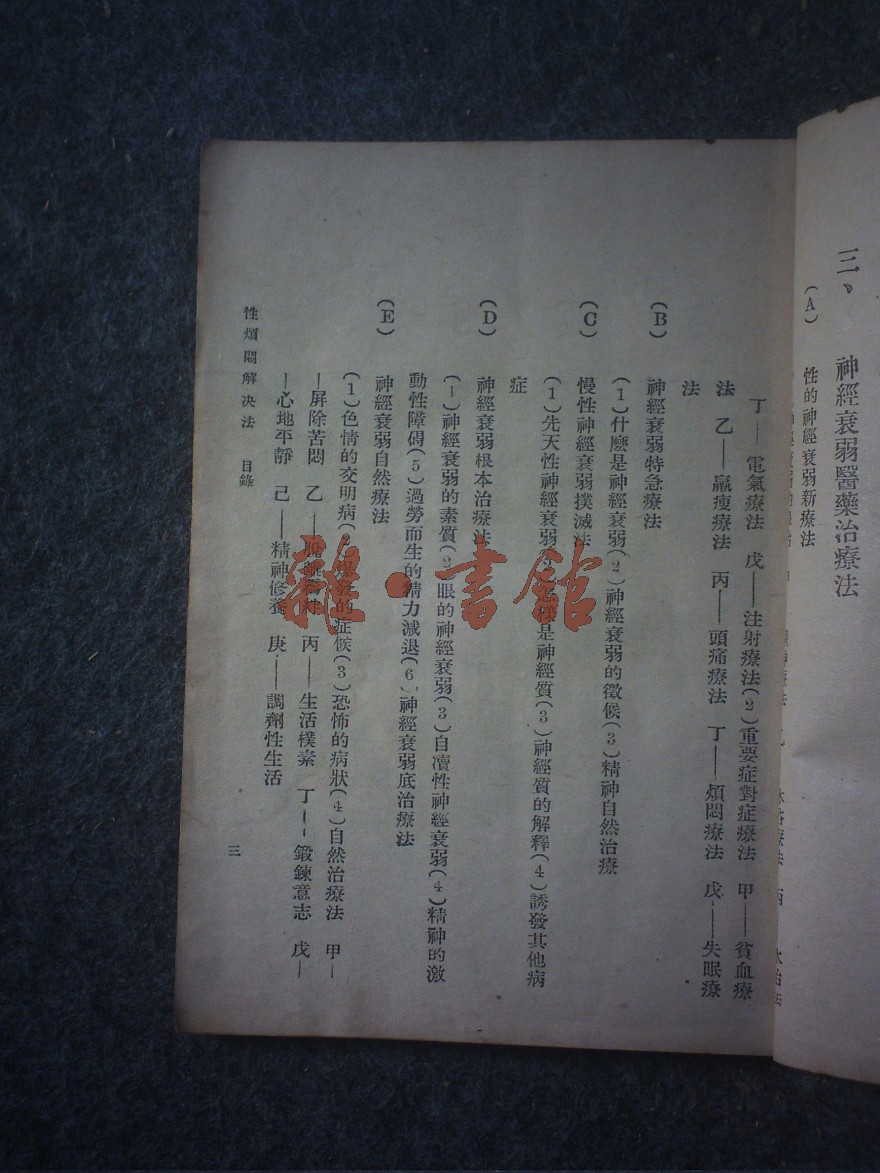 三、 神經衰弱醫藥治療法
(A) 性的神經衰弱新療法
丁——電氣療法 戊——注射療法(2)重要症對症療法 甲——貧血療
法 乙——羸瘦療法 丙——頭痛療法 丁——煩悶療法 戊——失眠療
法
(B) 神經衰弱特急療法
(1)什麽是神經衰弱(2)神經衰弱的徵候(3)精神自然治療
(C) 慢性神經衰弱撲滅法
(1)先天性神經衰弱(2)怎樣是神經質(3)神經質的解釋(4)誘發其他病
症
(D) 神經衰弱根本治療法
(1)神經衰弱的素質(2)眼的神經衰弱(3)自瀆性神經衰弱(4)精神的激
動性障碍(5)過勞而生的精力減退(6)神經衰弱底治療法
(E) 神經衰弱自然療法
(1)色情的交明病 發的症候(3)恐怖的病狀(4)自然治療法 甲—
—屏除苦悶 乙— 丙——生活樸素 丁——鍛鍊意志 戊—
—心地平靜 己——精神修養 庚——調劑性生活
性煩悶解決法 目錄
三
雜·書館